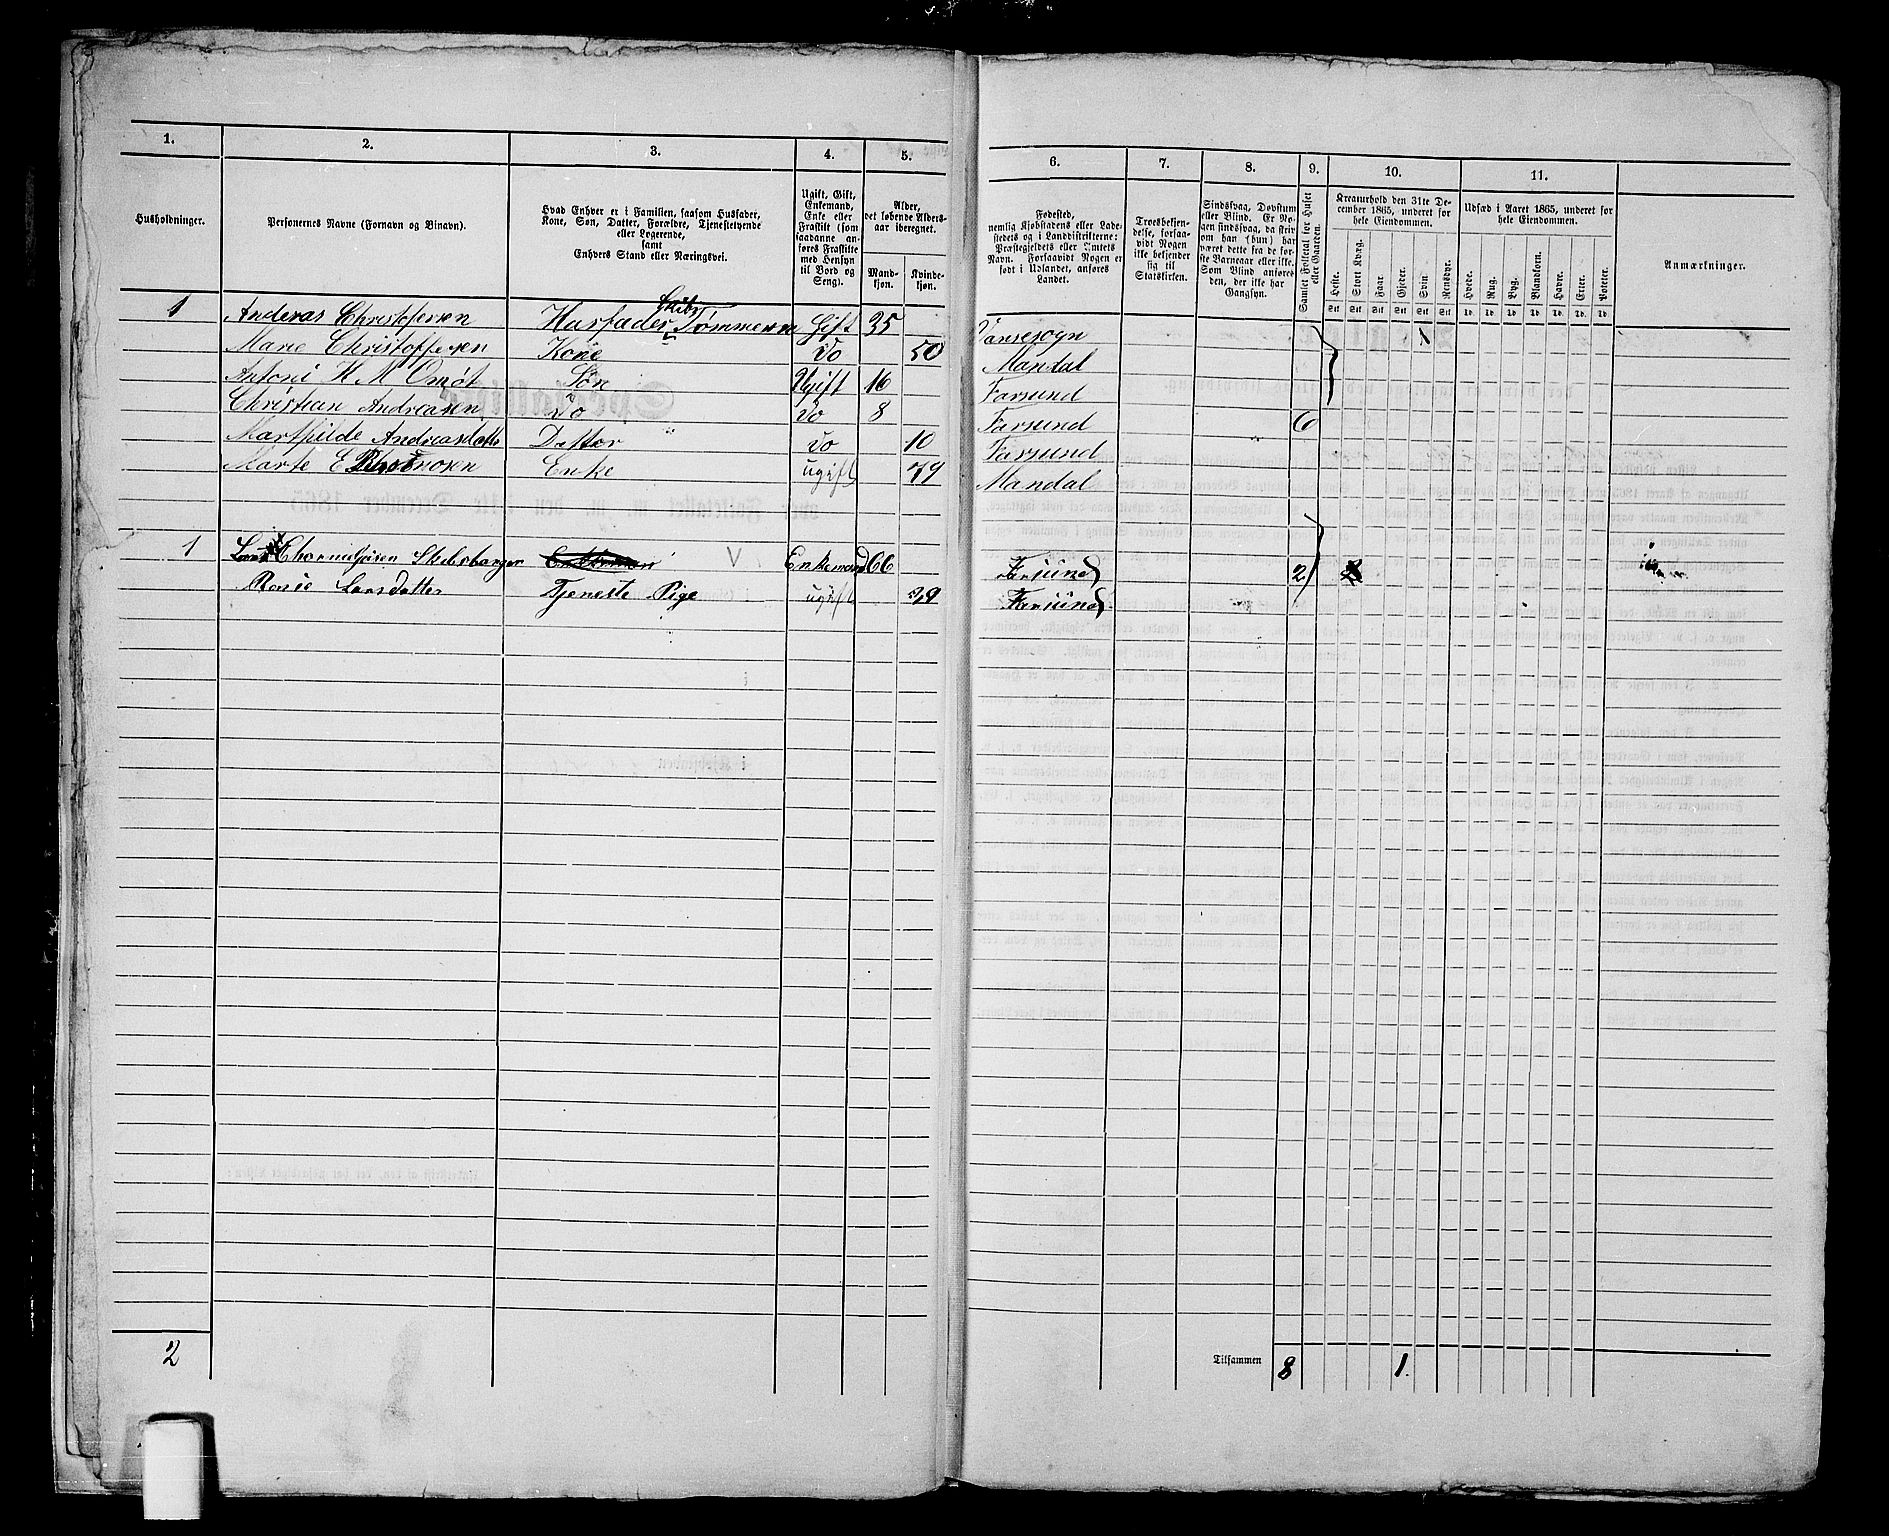 1. 2. 3. 4. 5. 6. 7. 8. 9. 10. 11.
Husholdninger.
Personernes Navne (Fornavn og Binavn).
Hvad Enhver er i Familien, saasom Husfader,
Kone, Søn, Datter, Forældre, Tjenestetyende
eller Logerende,
samt
Enhvers Stand eller Næringsvei.
Ugift, Gift,
Enkemand,
Enke eller
Fraskilt (som
saadanne an-
føres Fraskilte
med Hensyn
til Bord og
Seng).
Alder,
det løbende Alders-
aar iberegnet.
Mand-
kjøn.
Kvinde-
kjøn.
Fødested,
nemlig Kjøbstadens eller Lade-
stedets og i Landdistrikterne:
Præstegjeldets eller Amtets
Navn. Forsaavidt Nogen er
født i Udlandet, anføres
Landet.
Troesbekjen-
delse, forsaa-
vidt Nogen
ikke bekjender
sig til
Statskirken.
Sindssvag, Døvstum
eller Blind. Er No-
gen sindssvag, da skriv
om han (hun) har
været dette fra de før-
ste Barneaar eller ikke.
Som Blind anføres
den, der ikke har
Gangsyn.
Samlet Folketal for Huset
eller Gaarden.
Kreaturhold den 31te De-
cember 1865, underet for
hele Eiendommen.
Heste.
Stort Kvæg.
Faar.
Gjeder.
Svin.
Rensdyr.
Stk Stk Stk Stk Stk Stk
Udsæd i Aaret 1865, underet for
hele Eiendommen.
Hvede.
Rug.
Byg.
Blandkorn.
Havre.
Erter.
Poteter.
Td. Td. Td. Td. Td. Td. Td.
Anmærkninger.
1 Anderas Christofersen Husfader, Tømmermn Gift 35 Vansesogn 1
Marie Christoffersen Kone Do 50 Mandal
Antoni H M Omøt Søn Ugift 16 Farsund
Christian Andreasen Do Do 8 Farsund 6
Marthilde Andreasdatter Datter Do 10 Farsund
Marte E Enke ugift 79 Mandal
1 V Enkemand 66 Farsund 2
Larsdatter Tjeneste Pige ugift 29 Farsund
2 Tilsammen 8 1.